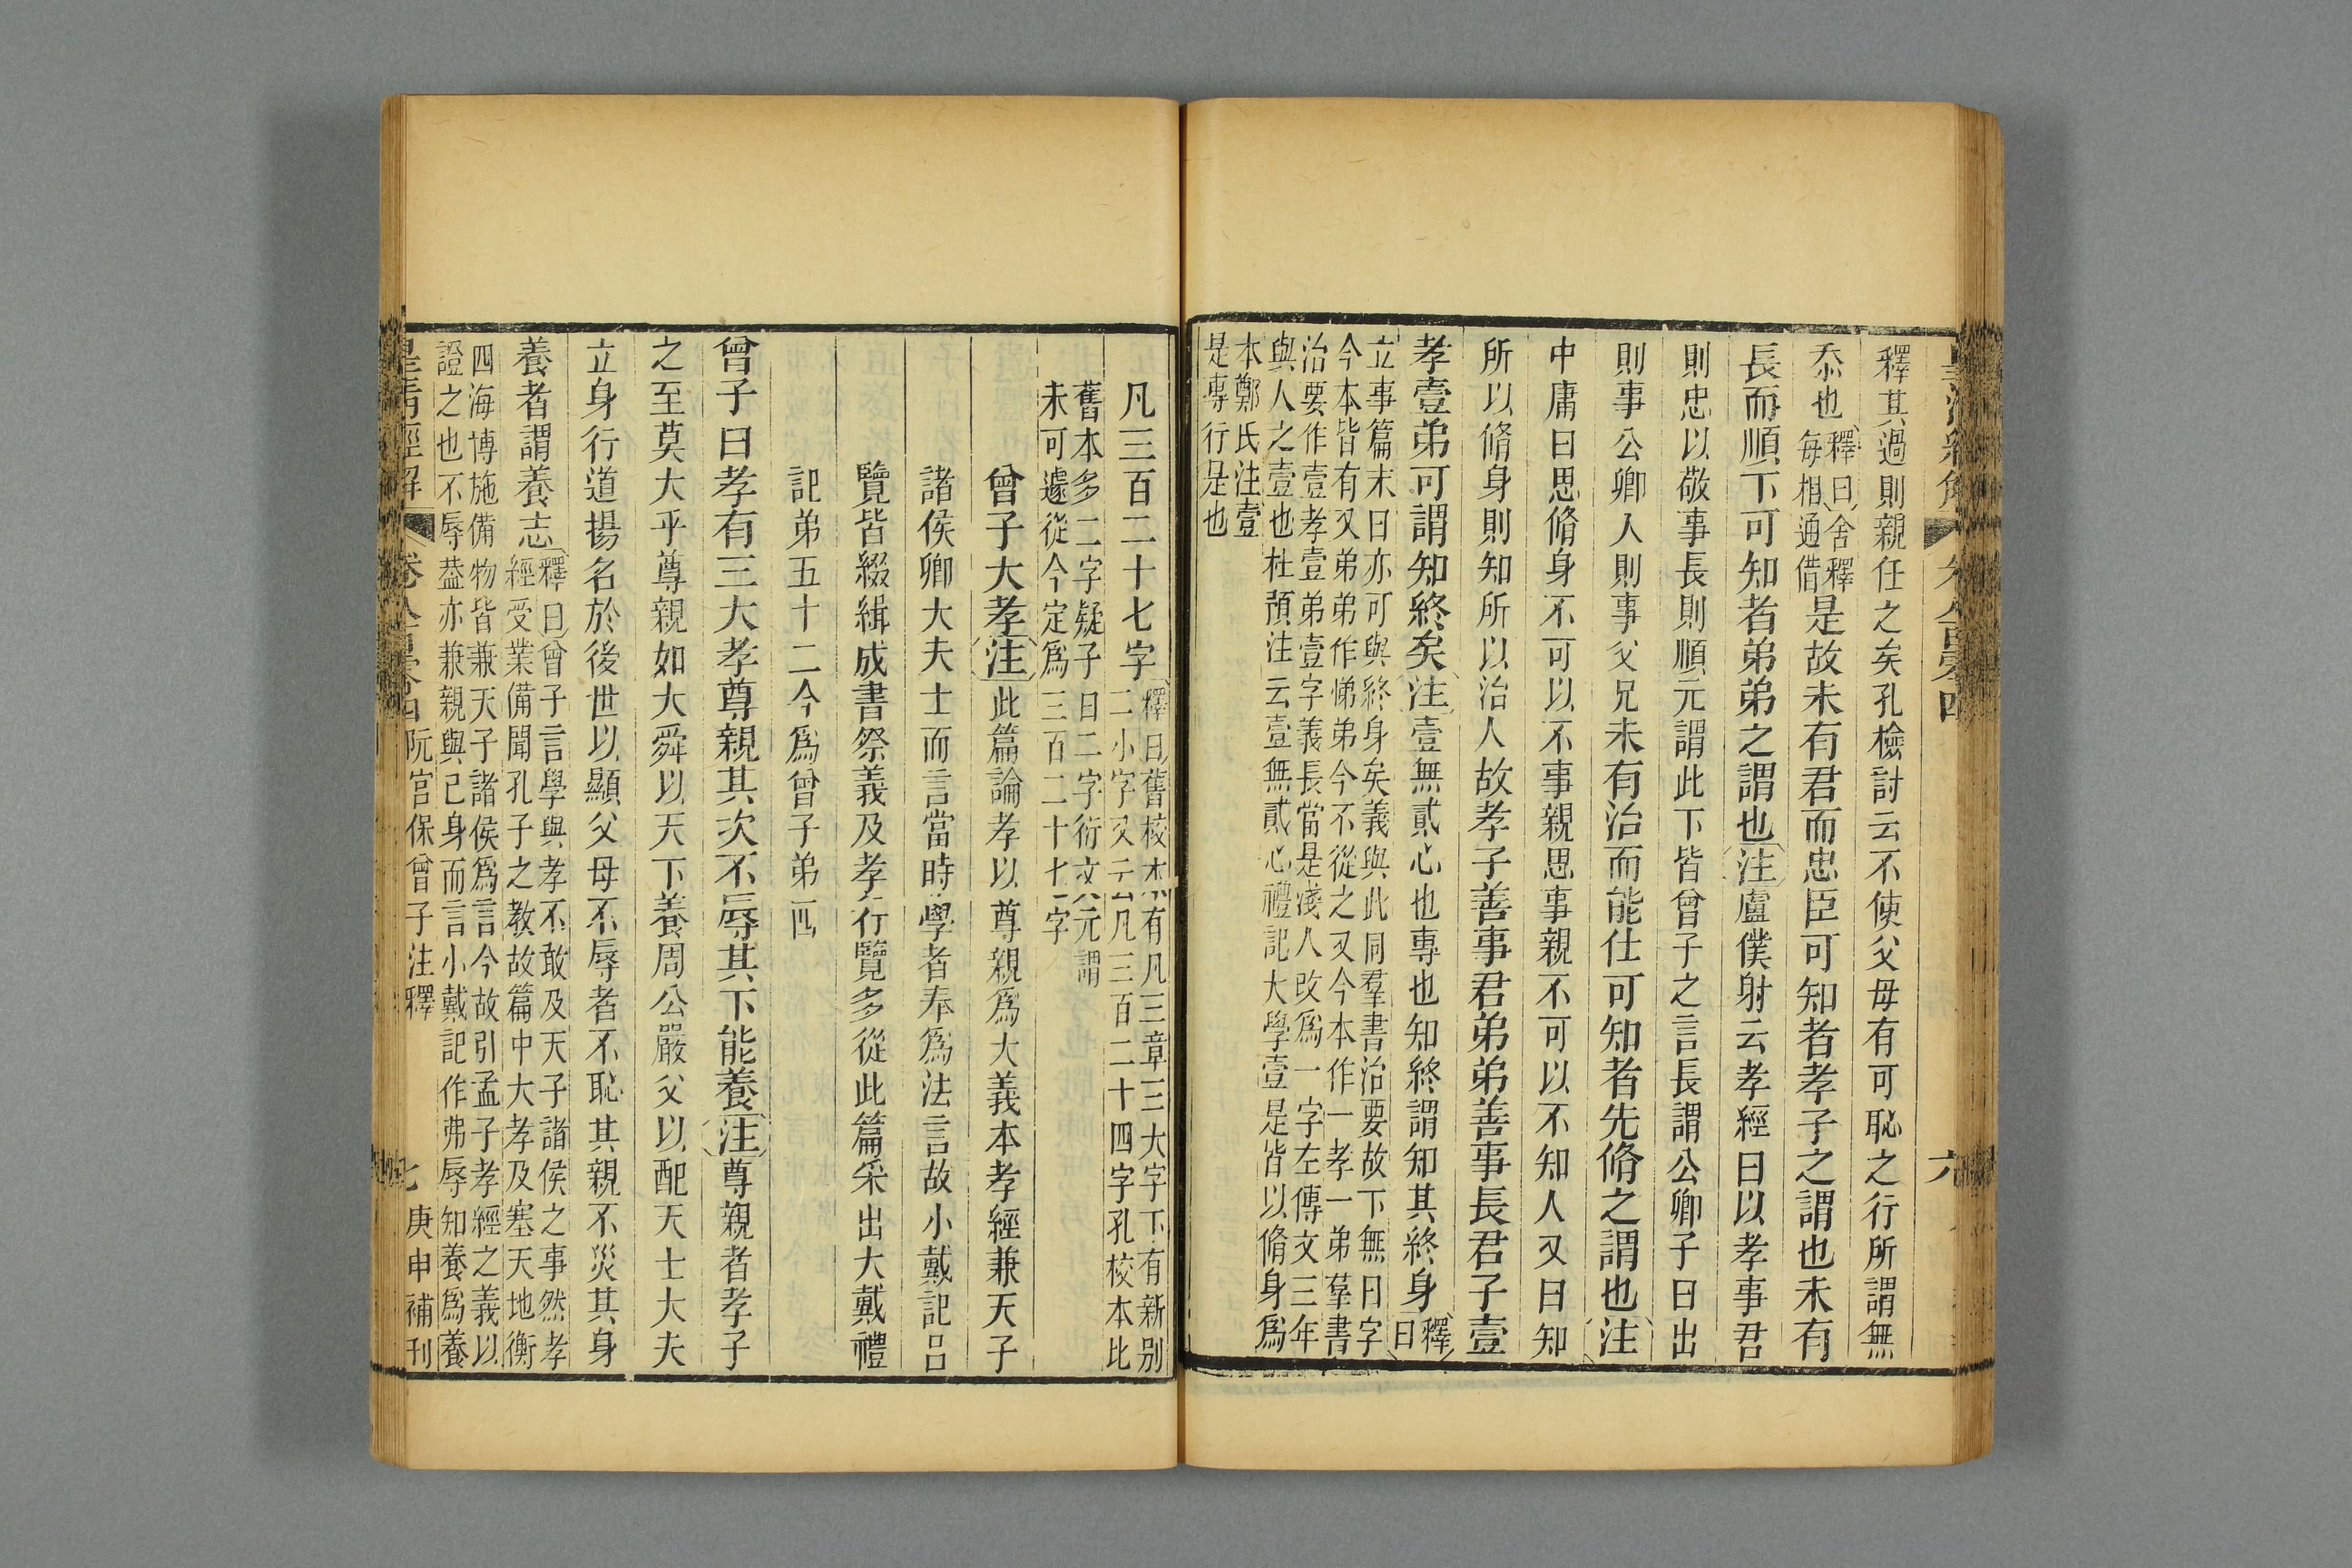 皇清經解 卷八百四 六
釋其過則親任之矣孔檢討云不使父母有可恥之行所謂無
忝也釋曰舍釋
毎相通借是故未有君而忠臣可知者孝子之謂也未有
長而順下可知者弟弟之謂也注盧僕射云孝經曰以孝事君
則忠以敬事長則順元謂此下皆曾子之言長謂公卿子曰出
則事公卿人則事父兄未有治而能仕可知者先脩之謂也注
中庸曰思脩身不可以不事親思事親不可以不知人又曰知
所以脩身則知所以治人故孝子善事君弟弟善事長君子壹
孝壹弟可謂知終矣注壹無貳心也專也知終謂知其終身釋
曰
立事篇末曰亦可與終身矣義與此同羣書治要故下無曰字
今本皆有又弟弟作悌弟今不從之又今本作一孝一弟羣書
治要作壹孝壹弟壹字義長當是淺人改爲一字左傳文三年
與人之壹也杜預注云壹無貳心禮記大學壹是皆以脩身爲
本鄭氏注壹
是專行是也
凡三百二十七字釋曰舊校本有凡三章三大字下有新别
二小字又云凡三百二十四字孔校本比
舊本多二字疑子曰二字衍文元謂
未可遽從今定爲三百二十七字
曾子大孝注此篇論孝以尊親爲大義本孝經兼天子
諸侯卿大夫士而言當時學者奉爲法言故小戴記呂
覽皆綴緝成書祭義及孝行覽多從此篇采出大戴禮
記弟五十二今爲曾子弟四
曾子曰孝有三大孝尊親其次不辱其下能養注尊親者孝子
之至莫大乎尊親如大舜以天下養周公嚴父以配天士大夫
立身行道揚名於後世以顯父母不辱者不恥其親不災其身
養者謂養志釋曰曾子言學與孝不敢及天子諸侯之事然孝
經受業備聞孔子之教故篇中大孝及塞天地衡
四海博施備物皆兼天子諸侯爲言今故引孟子孝經之義以
證之也不辱葢亦兼親與已身而言小戴記作弗辱知養爲養
皇清經解 卷八百四 阮宮保曾子注釋 七 庚申補刊